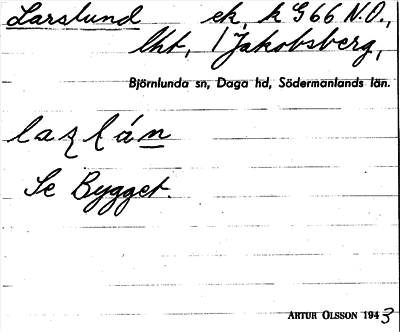 Larslund ek. k G66 N.O.,
lht, 1 Jakobsberg,
Björnlunda sn, Daga hd, Södermanlands län.
Se Bygget.
ARTUR OLSSON 1943